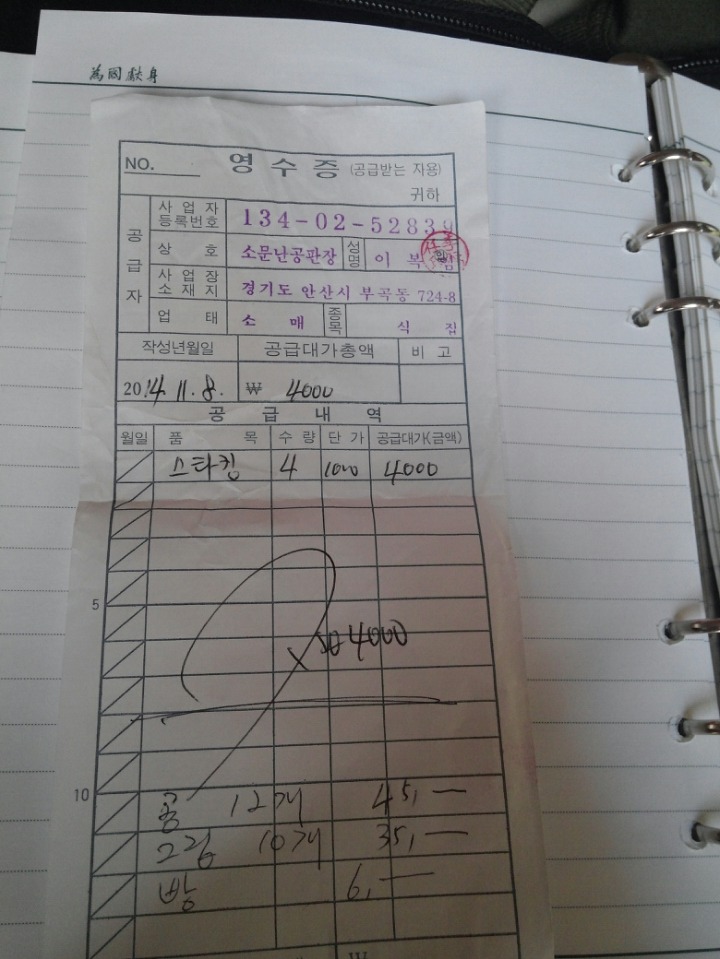 為國獻身
NO.
영수증 (공급받는 자용)
귀하
공급자
사업자등록번호 134-02-52839
상호 소문난공판장 성명 이복
사업장소재지 경기도 안산시 부곡동 724-8
업태 소매 종목 식 집
작성년월일 공급대가총액 비고
2014. 11. 8. ₩ 4000
공급내역
월일 품목 수량 단가 공급대가(금액)
스타킹 4 1000 4000
5
4000
10
콩 12개 45,—
고림 10개 35,—
빵 6,—